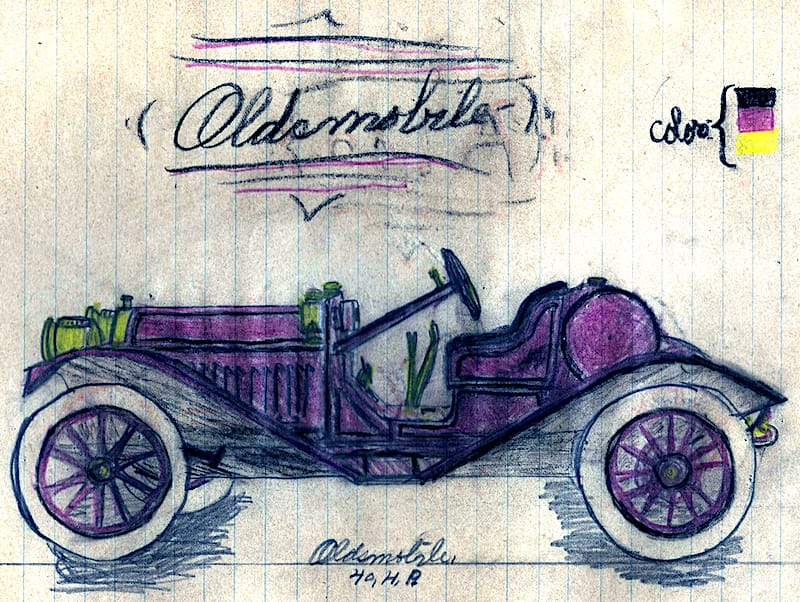 ( Oldsmobile )
color {
Oldsmobile.
40, H, P.